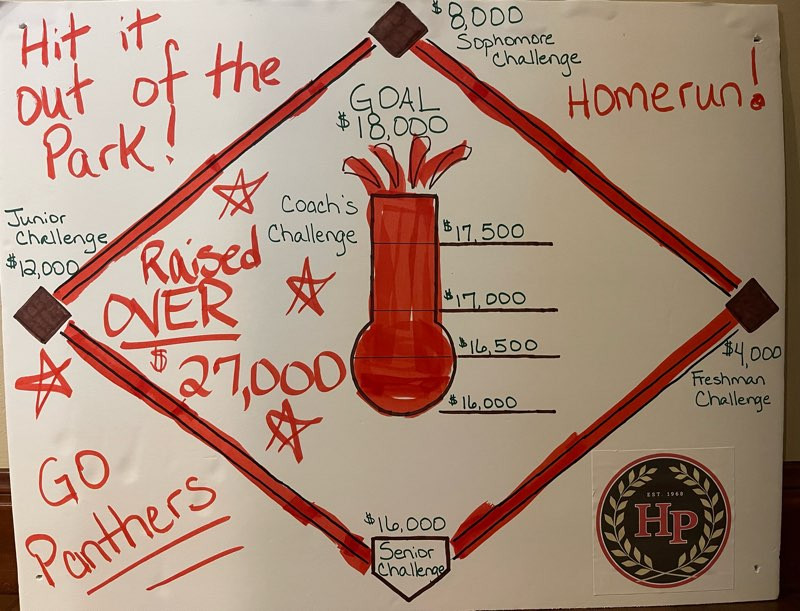 Hit it
out of the
Park!
$8,000
Sophomore
Challenge
Homerun!
GOAL
$18,000
Junior
Challenge
$12,000
Coach's
Challenge
Raised
OVER
$27,000
$17,500
$17,000
$16,500
$16,000
$4,000
Freshman
Challenge
GO
Panthers
$16,000
Senior
Challenge
EST 1968
HP